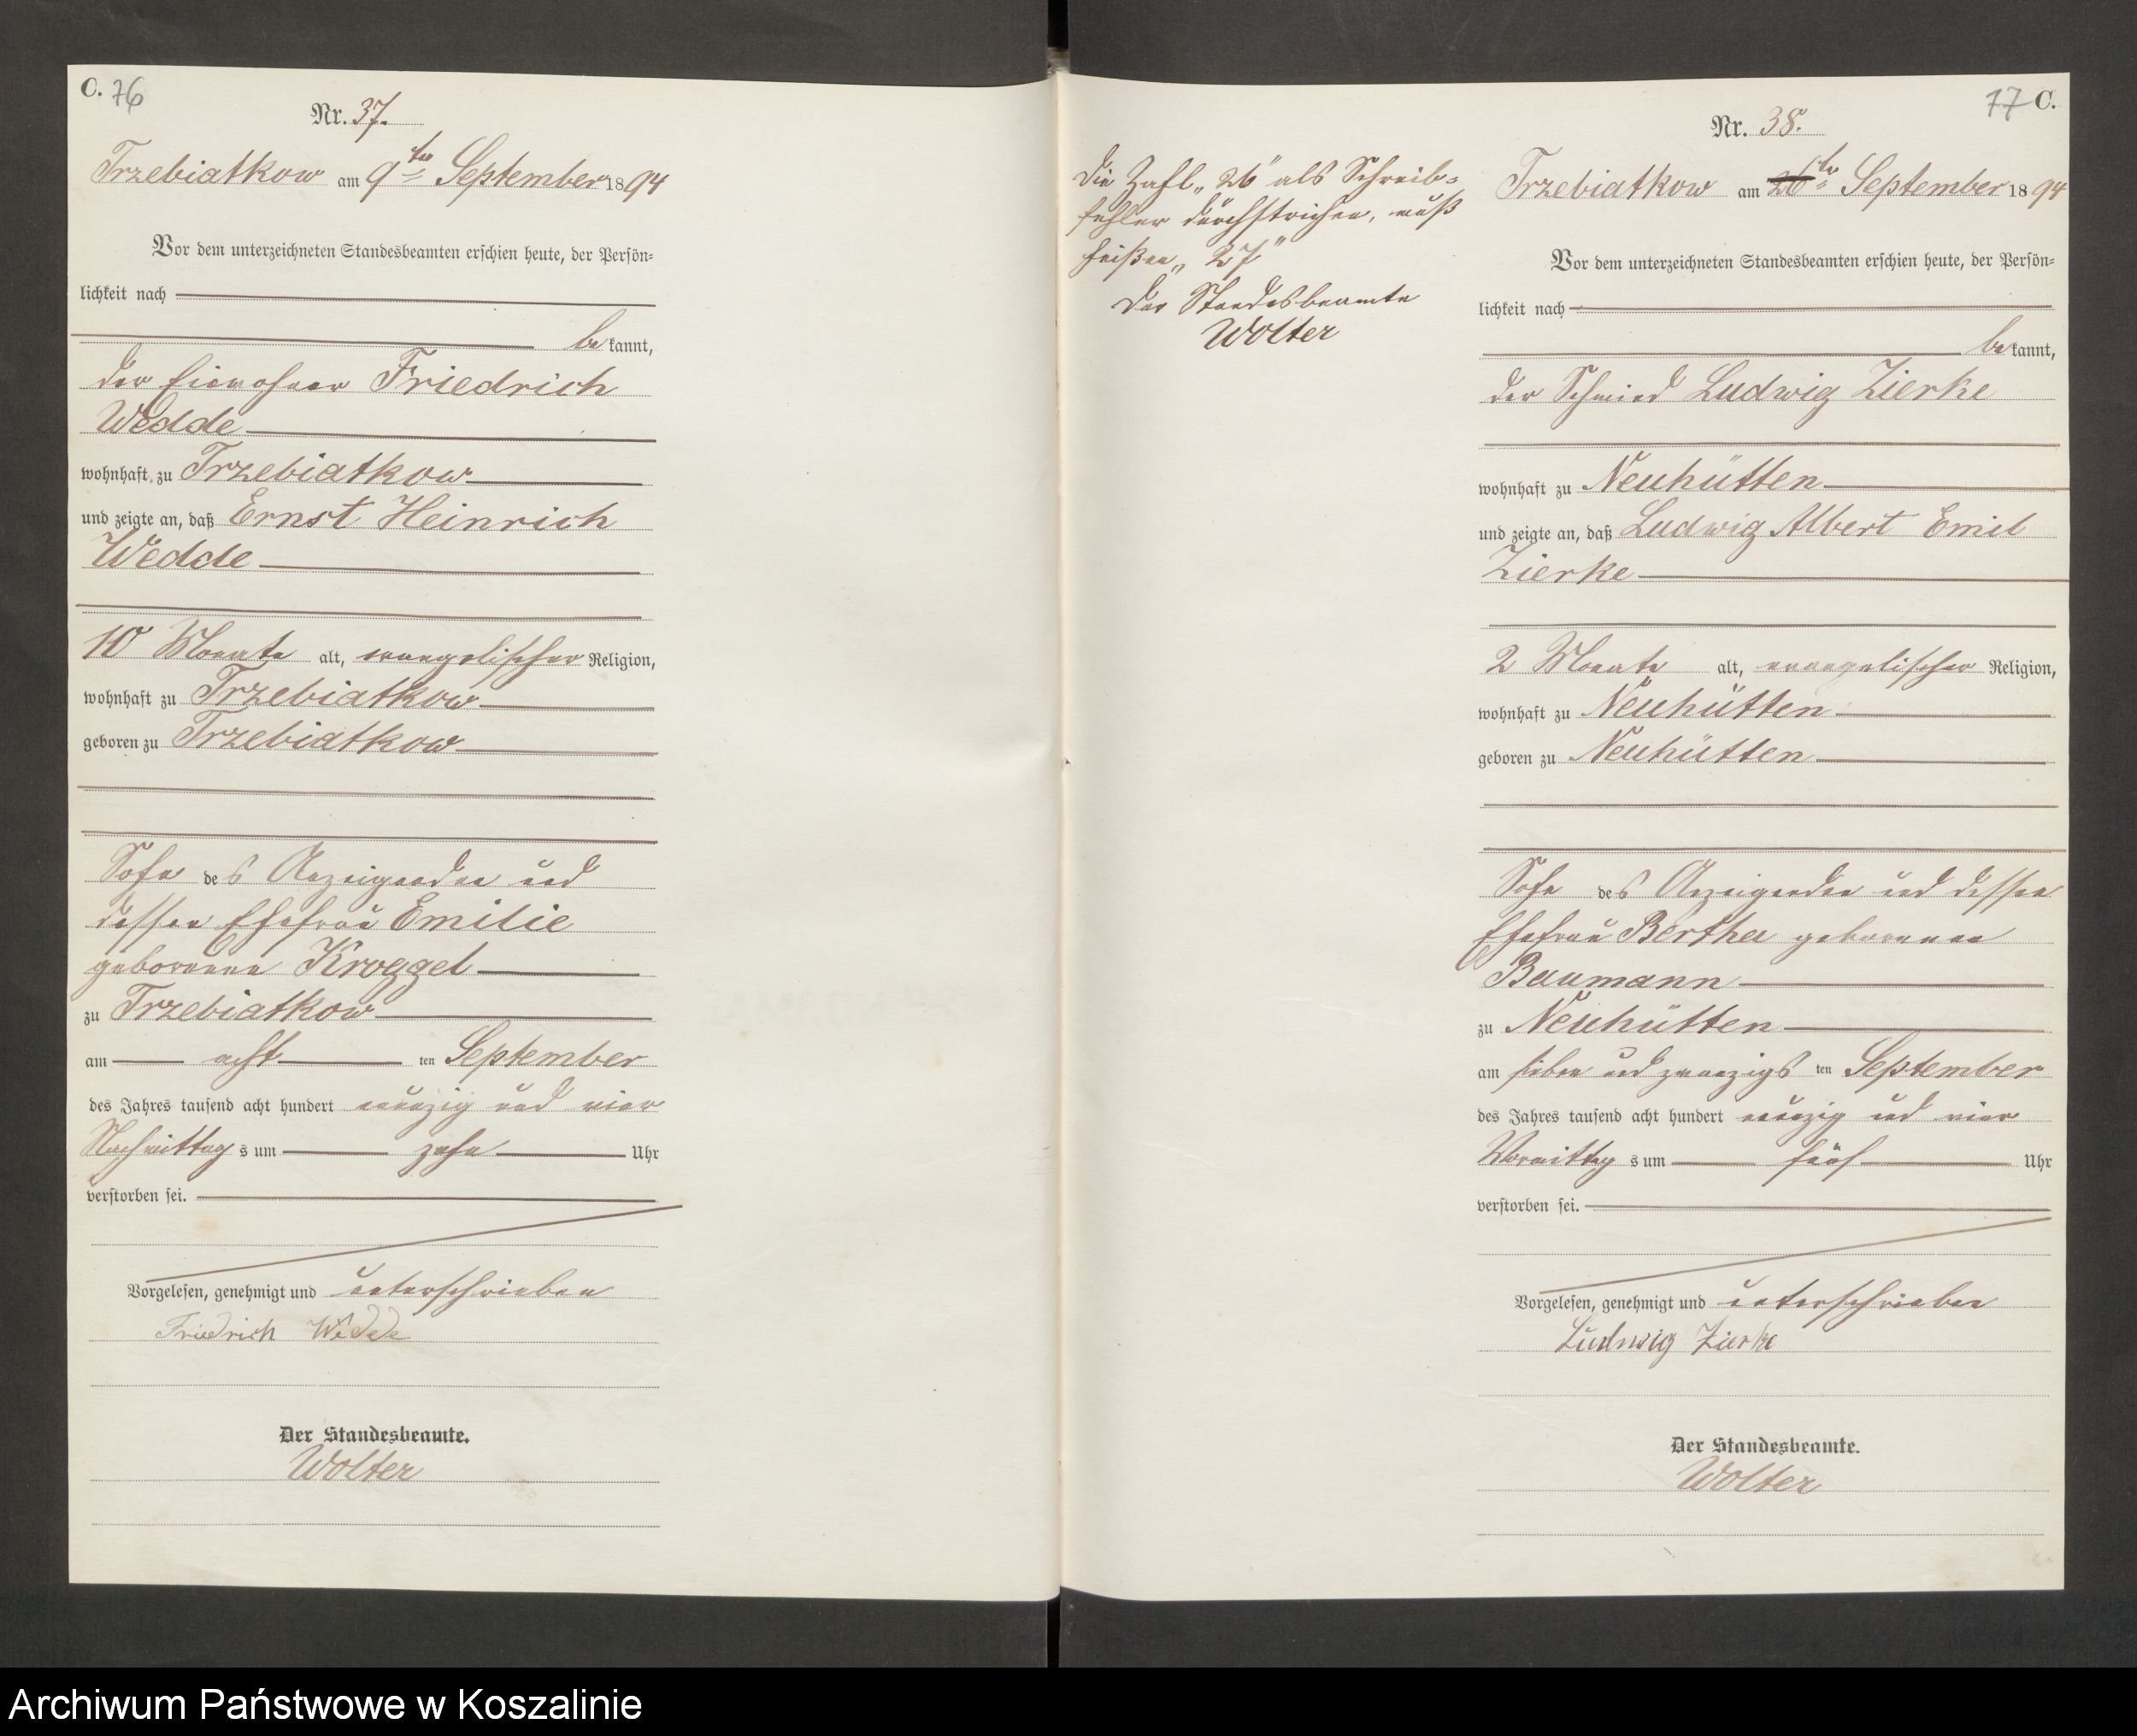 C. 76
Nr. 37.
Trzebiatkow am 9ten September 1894
Vor dem unterzeichneten Standesbeamten erschien heute, der Persön=
lichkeit nach
be kannt,
der Einwohner Friedrich
Wedde
wohnhaft zu Trzebiatkow
und zeigte an, daß Ernst Heinrich
Wedde
10 Monate alt, evangelischer Religion,
wohnhaft zu Trzebiatkow
geboren zu Trzebiatkow
Sohn des Anzeigenden und
dessen Ehefrau Emilie
geborenen Kroggel
zu Trzebiatkow
am acht ten September
des Jahres tausend acht hundert neunzig und vier
Nachmittags um zehn Uhr
verstorben sei.
Vorgelesen, genehmigt und unterschrieben
Friedrich Wedde
Der Standesbeamte.
Wolter
Die Zahl „26" als Schreib=
fehler durchstrichen, muß
heißen „27"
Der Standesbeamte
Wolter
77 C.
Nr. 38.
Trzebiatkow am 26ten September 1894
Vor dem unterzeichneten Standesbeamten erschien heute, der Persön=
lichkeit nach
be kannt,
der Schmied Ludwig Zierke
wohnhaft zu Neuhütten
und zeigte an, daß Ludwig Albert Emil
Zierke
2 Monate alt, evangelischer Religion,
wohnhaft zu Neuhütten
geboren zu Neuhütten
Sohn des Anzeigenden und dessen
Ehefrau Bertha geborenen
Baumann
zu Neuhütten
am sieben und zwanzigs ten September
des Jahres tausend acht hundert neunzig und vier
Vormittags um fünf Uhr
verstorben sei.
Vorgelesen, genehmigt und unterschrieben
Ludwig Zierke
Der Standesbeamte.
Wolter
Archiwum Państwowe w Koszalinie